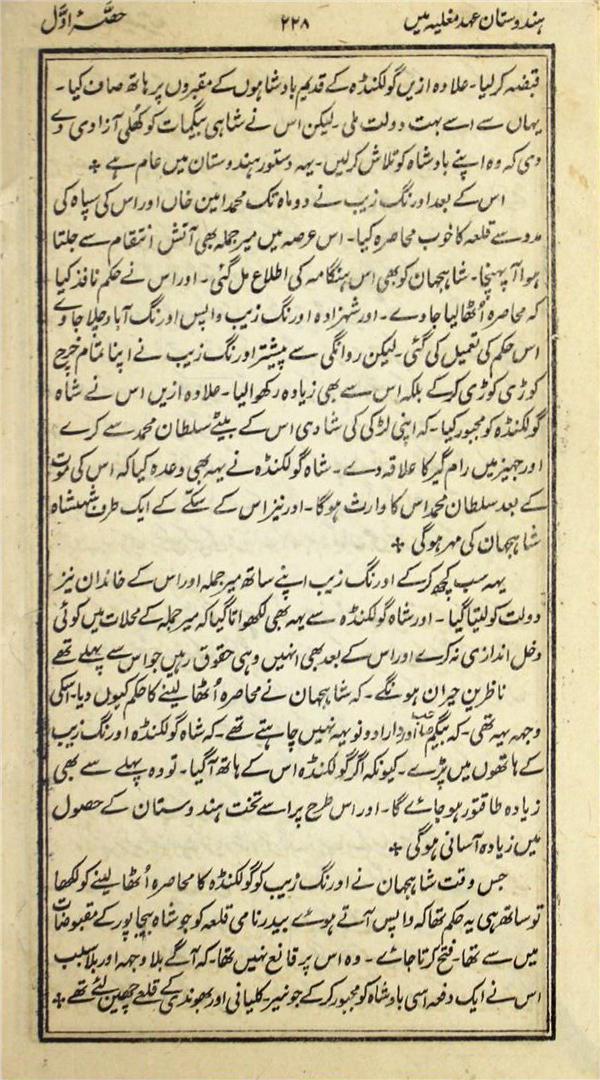 ہندوستان عہد مغلیہ میں ۲۲۸ حصّہ اوّل
قبضہ کرلیا۔ علاوہ ازیں گولکنڈہ کے قدیم بادشاہوں کے مقبروں پر ہاتھ صاف کیا۔
یہاں سے اسے بہت دولت ملی۔ لیکن اس نے شاہی بیگمات کو کھُلی آزادی دے
دی کہ وہ اپنے بادشاہ کو تلاش کرلیں۔ یہہ دستور ہندوستان میں عام ہے ٭
اس کے بعد اورنگ زیب نے دو ماہ تک محمد امین خاں اور اس کی سپاہ کی
مدد سے قلعہ کا خوب محاصرہ کیا۔ اس عرصہ میں میر جملہ بھی آتش انتقام سے جلتا
ہوا آ پہنچا۔ شاہجہان کو بھی اس ہنگامہ کی اطلاع مل گئی۔ اور اس نے حکم نافذ کیا
کہ محاصرہ اُٹھا لیا جاوے۔ اور شہزادہ اورنگ زیب واپس اورنگ آباد چلا جاوے
اس حکم کی تعمیل کی گئی۔ لیکن روانگی سے پیشتر اورنگ زیب نے اپنا تمام خرچ
کوڑی کوڑی کرکے بلکہ اس سے بھی زیادہ رکھوا لیا۔ علاوہ ازیں اس نے شاہ
گولکنڈہ کو مجبور کیا۔ کہ اپنی لڑکی کی شادی اس کے بیٹے سلطان محمد سے کرے
اور جہیز میں رام گیر کا علاقہ دے۔ شاہ گولکنڈہ نے یہہ بھی وعدہ کیا کہ اس کی موت
کے بعد سلطان محمد اس کا وارث ہوگا۔ اور نیز اس کے سکّے کے ایک طرف شہنشاہ
شاہجہان کی مہر ہوگی ٭
یہہ سب کچھ کرکے اورنگ زیب اپنے ساتھ میر جملہ اور اس کے خاندان نیز
دولت کو لیتا گیا۔ اور شاہ گولکنڈہ سے یہہ بھی لکھواتا گیا کہ میر جملہ کے محلات میں کوئی
دخل اندازی نہ کرے اور اس کے بعد بھی انہیں وہی حقوق رہیں جو اس سے پہلے تھے
ناظرین حیران ہونگے۔ کہ شاہجہان نے محاصرہ اُٹھا لینے کا حکم کیوں دیا۔ اسکی
وجہہ یہہ تھی۔ کہ بیگم صاحب اور دارا دونو یہہ نہیں چاہتے تھے۔ کہ شاہ گولکنڈہ اورنگ زیب
کے ہاتھوں میں پڑے۔ کیونکہ اگر گولکنڈہ اس کے ہاتھ آگیا۔ تو وہ پہلے سے بھی
زیادہ طاقتور ہو جائے گا۔ اور اس طرح پر اسے تخت ہندوستان کے حصول
میں زیادہ آسانی ہوگی ٭
جس وقت شاہجہان نے اورنگ زیب کو گولکنڈہ کا محاصرہ اُٹھا لینے کو لکھا
تو ساتھ ہی یہ حکم تھا کہ واپس آتے ہوئے بیدر نامی قلعہ کو جو شاہ بیجاپور کے مقبوضات
میں سے تھا۔ فتح کرتا جائے۔ وہ اس پر قانع نہیں تھا۔ کہ آگے بلا وجہہ اور بلا سبب
اس نے ایک دفعہ اسی بادشاہ کو مجبور کرکے جونیر۔ کلیانی اور بھوندی کے قلعے چھین لئے تھے ٭